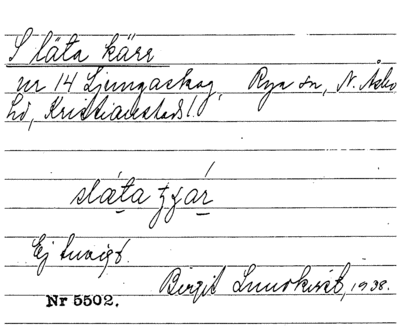 Släta kärr
nr 14 Ljungaskog, Rya sn, N. Åsbo
hd, Kristianstads l.
släta
Ej tuvigt.
Birgit Lundkvist, 1938.
Nr 5502.